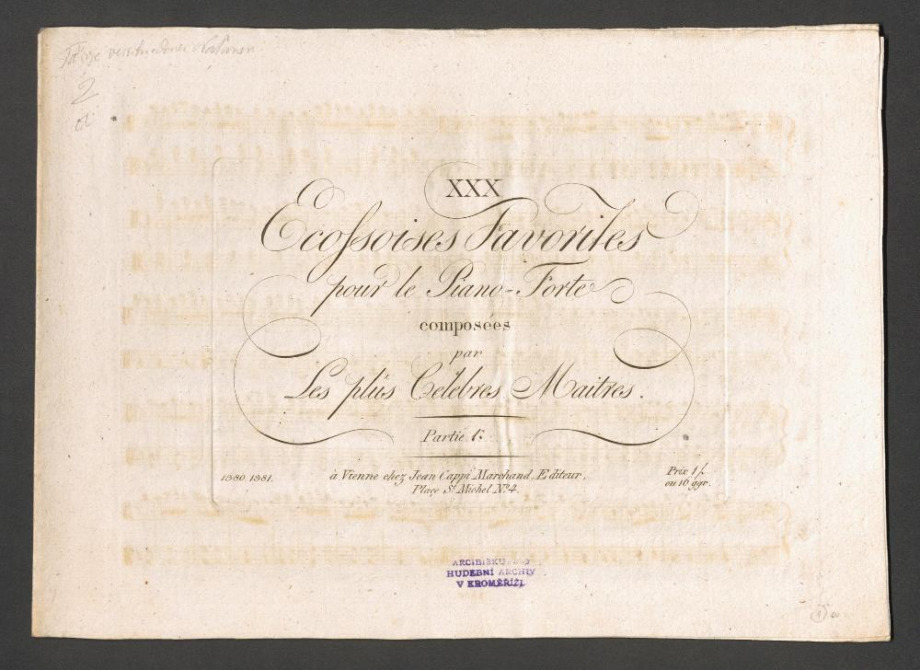 2
XXX
Ecoſsoises Favorites
pour le Piano-Forte
composées
par
Les plus Célebres Maitres.
Partie 1.
1980. 1981.
à Vienne chez Jean Cappi Marchand, Editeur,
Place St. Michel No. 4.
Prix 1 f.
ou 16 ggr.
HUDEBNÍ ARCHIV
V KROMĚŘÍŽI